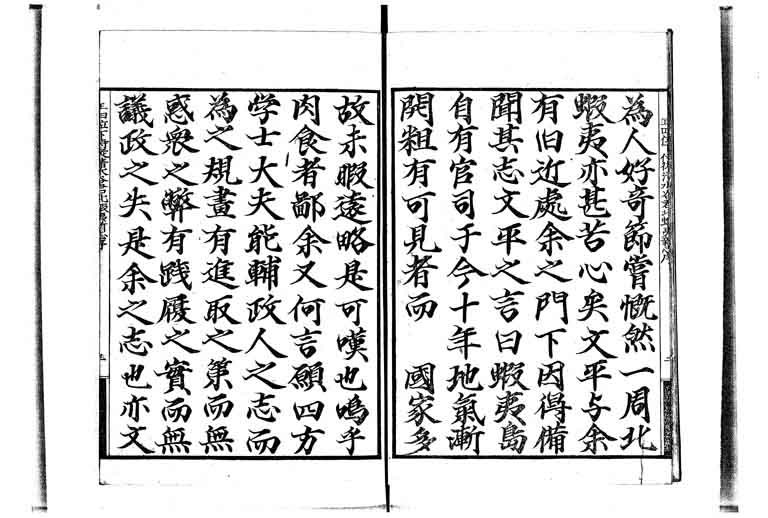 為人好奇節嘗慨然一周北
蝦夷亦甚苦心矣文平与余
有旧近處余之門下因得備
聞其志文平之言曰蝦夷島
自有官司于今十年地氣漸
開粗有可見者而　國家多
故未暇遠略是可嘆也嗚乎
肉食者鄙余又何言願四方
学士大夫能輔政人之志而
為之規畫有進取之策而無
惑衆之弊有践履之實而無
議政之失是余之志也亦文